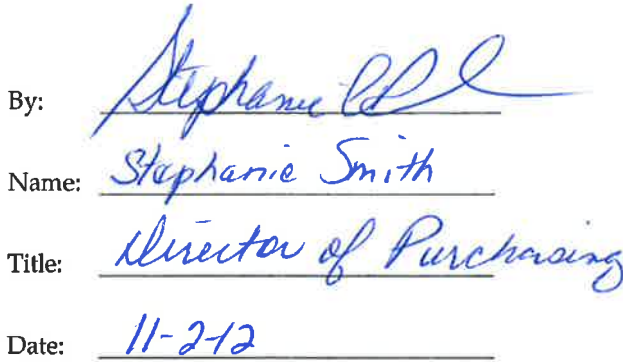 By: Stephanie
Name: Stephanie Smith
Title: Director of Purchasing
Date: 11-2-12